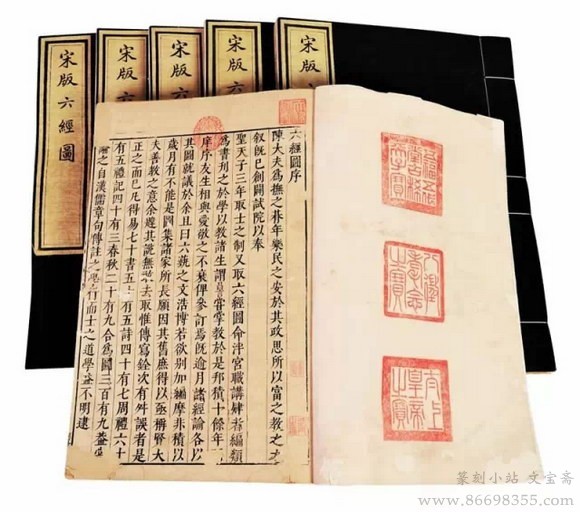 宋版六經圖
宋版六
宋版六
宋版六
宋版六
六經圖序
陳大夫為撫之朞年樂民之安於其政思所以富之教之
叙既已創闢試院以奉
聖天子三年取士之制又取六經圖命泮宮職講肄者編類
為書刊之於學以教諸生謂嘗掌教於是邦積十餘年
庠序友生相與愛敬之不衰俾參訂焉既逾月諸經論各以
其圖就議於余且曰六蓺之文浩博若欲別加編摩非積以
歲月有不能是圖集諸家所長願因其舊庶得以亟稱賢大
夫善教之意余韙其說無去取惟傳寫銓次有舛誤者是
正之而已凡得易七十書五十有五詩四十有七周禮六十
有五禮記四十有三春秋二十有九合為圖三百有九蓋
之自漢儒章句傳註之行而士之道學益不明逮
八徵耄念之寶
太上皇帝之寶
篆刻小站 文宝斋
www.86698355.com